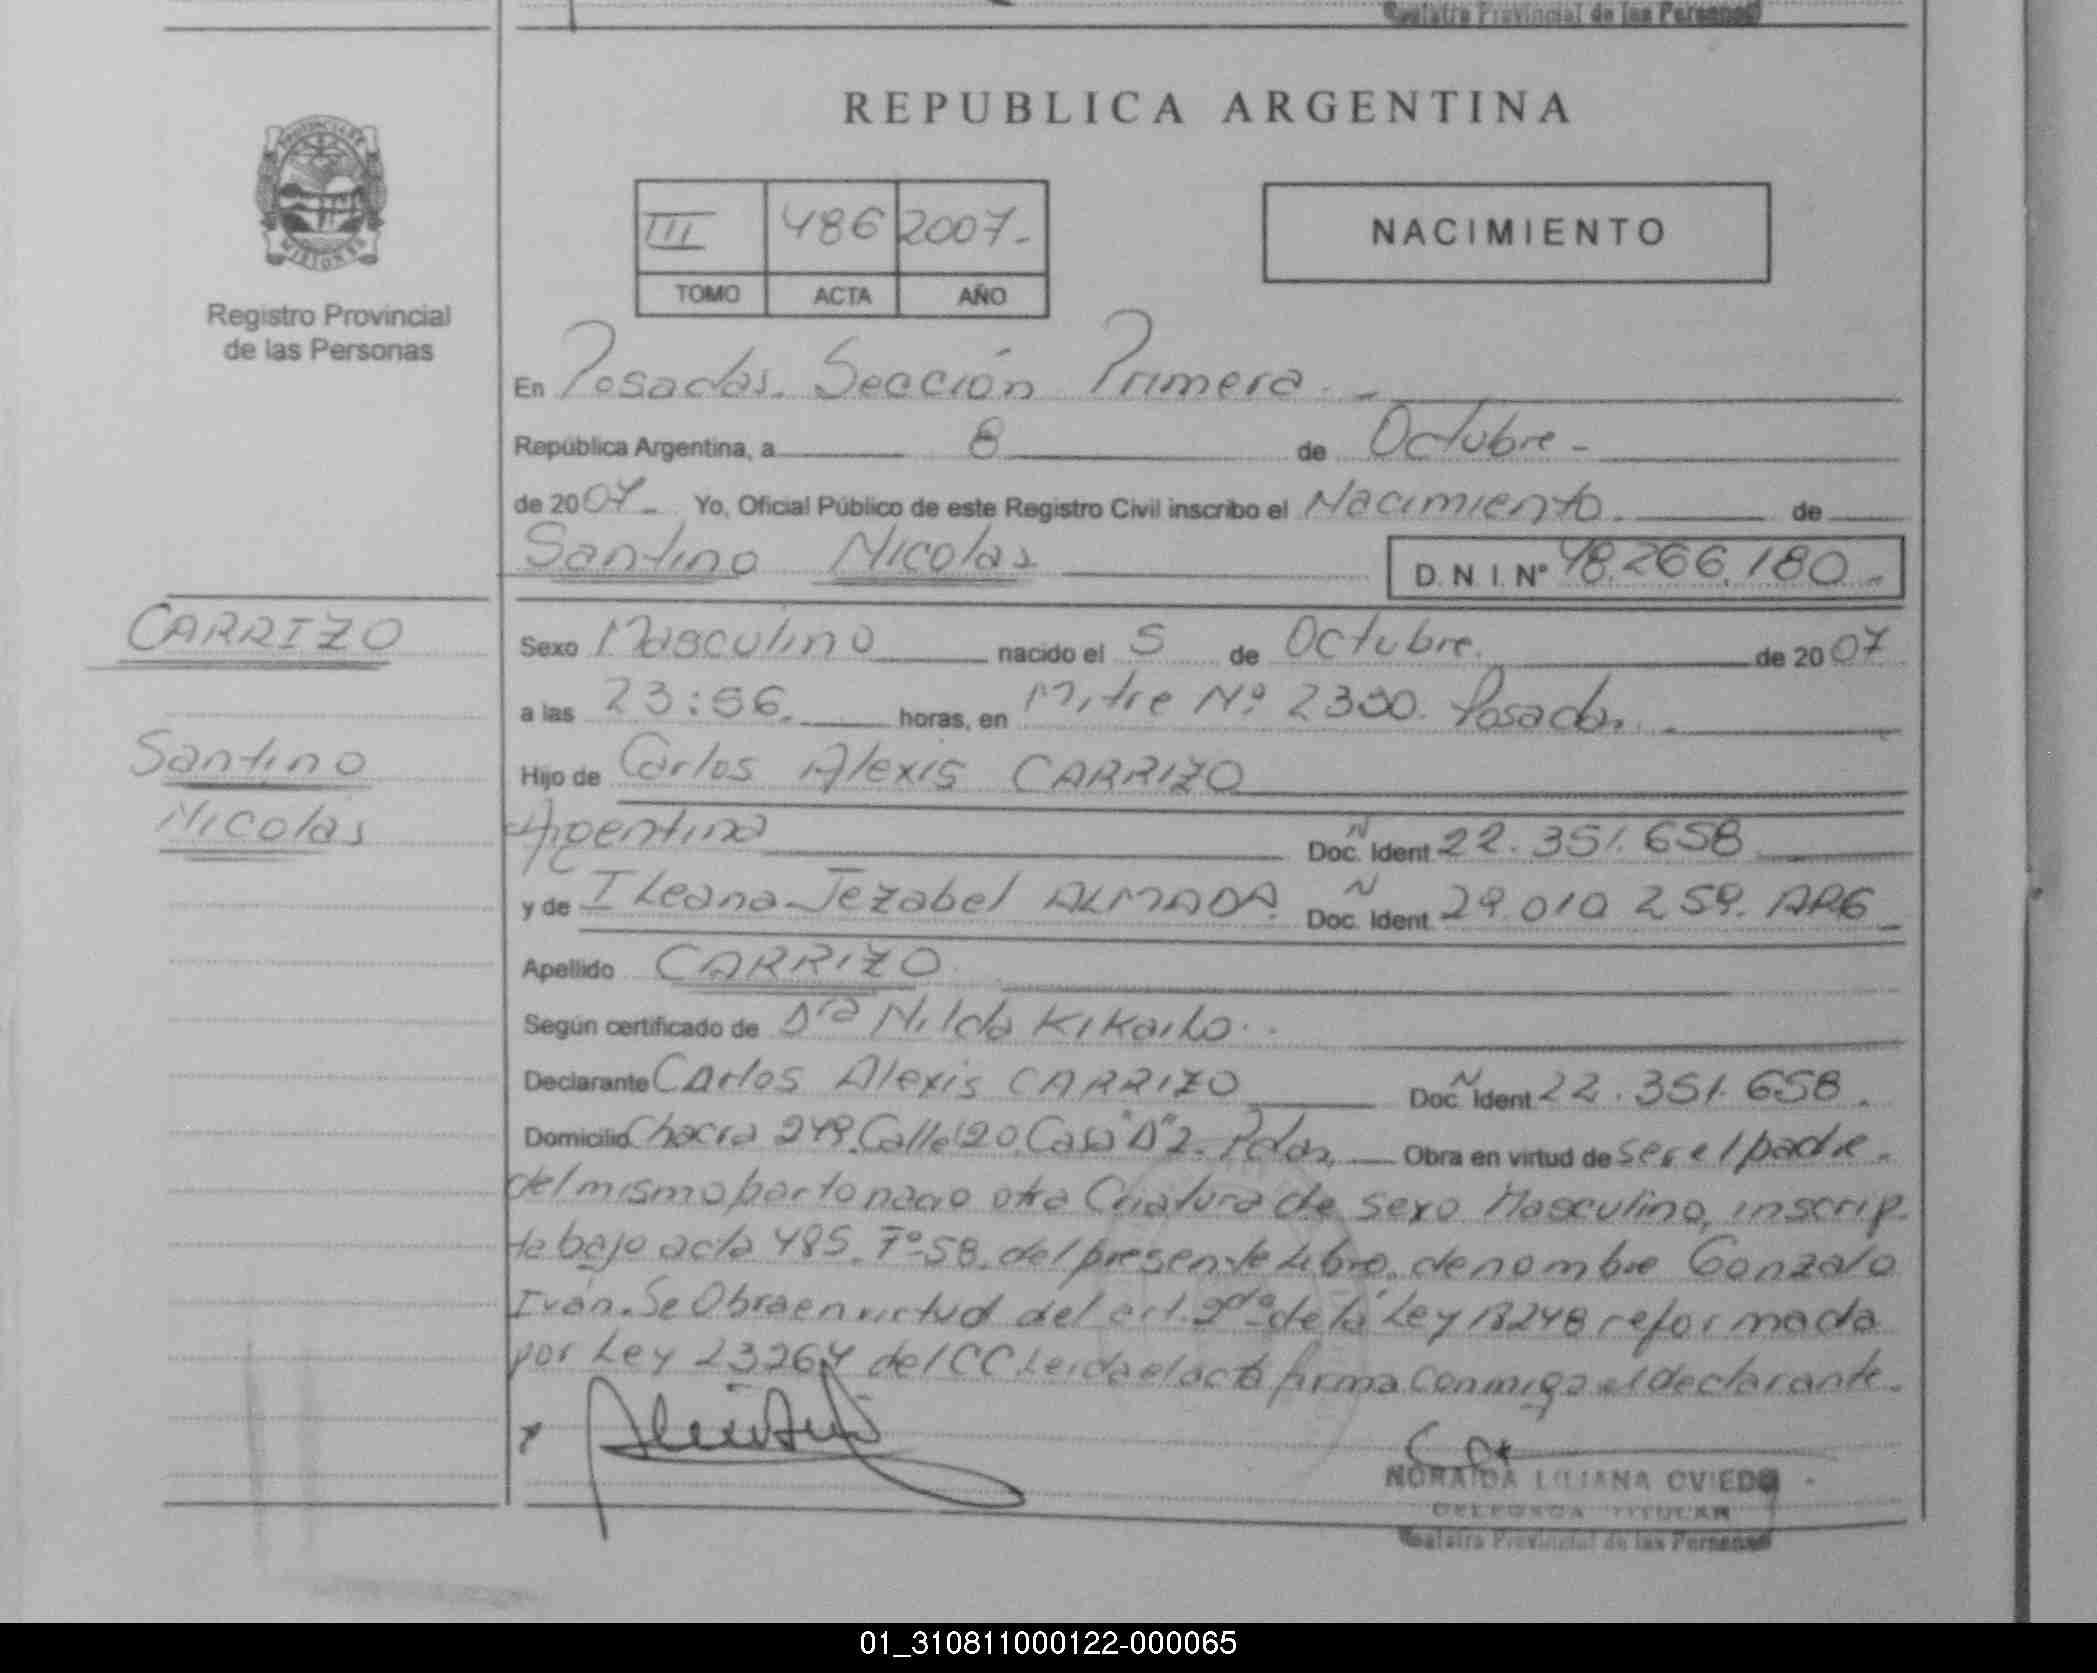 Registro Provincial de las Personas
REPUBLICA ARGENTINA
PROVINCIA DE
MISIONES
Registro Provincial
de las Personas
III 486 2007.-
TOMO ACTA AÑO
NACIMIENTO
En Posadas. Sección Primera.-
República Argentina, a 8 de Octubre-
de 2007- Yo, Oficial Público de este Registro Civil inscribo el Nacimiento. de
Santino Nicolas D.N.I. Nº 48.266.180.-
CARRIZO
Sexo Masculino nacido el 5 de Octubre. de 2007
a las 23:56. horas, en Mitre Nº 2300. Posadas.-
Santino
Hijo de Carlos Alexis CARRIZO
Nicolás
Argentina Doc. Ident 22.351.658
y de ILeana Jezabel ALMADA. Doc. Ident. 29.010.259. ARG
Apellido CARRIZO.
Según certificado de Dra Nilda
Declarante Carlos Alexis CARRIZO Doc. Ident. 22.351.658.
Domicilio Chacra 249. Calle 120. Casa "D" 2. Pdas, Obra en virtud de ser el padre.
del mismo parto nacio otra Criatura de sexo Masculino, inscrip-
ta bajo acta 485. Fº-58. del presente Libro. de nombre Gonzalo
Iván. Se Obra en virtud del art. 2do de la Ley 18248 reformada
por Ley 23264 del CC Leida el acta firma conmigo el declarante.
NORAIDA LILIANA OVIEDO
DELEGADA TITULAR
Registro Provincial de las Personas
01_310811000122-000065